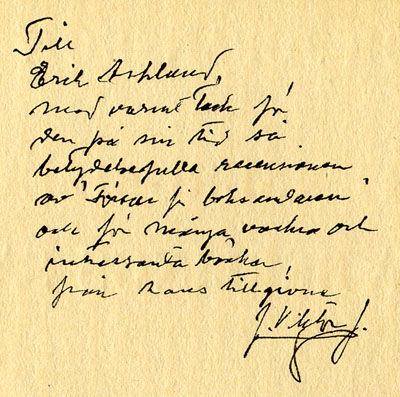 Till
Erik Asklund,
med varmt Tack för
den på sin tid så
betydelsefulla recensionen
av "Försvar f. boksamlaren"
och för många vackra och
intressanta böcker,
från Hans tillgivne
J. Viktor J.